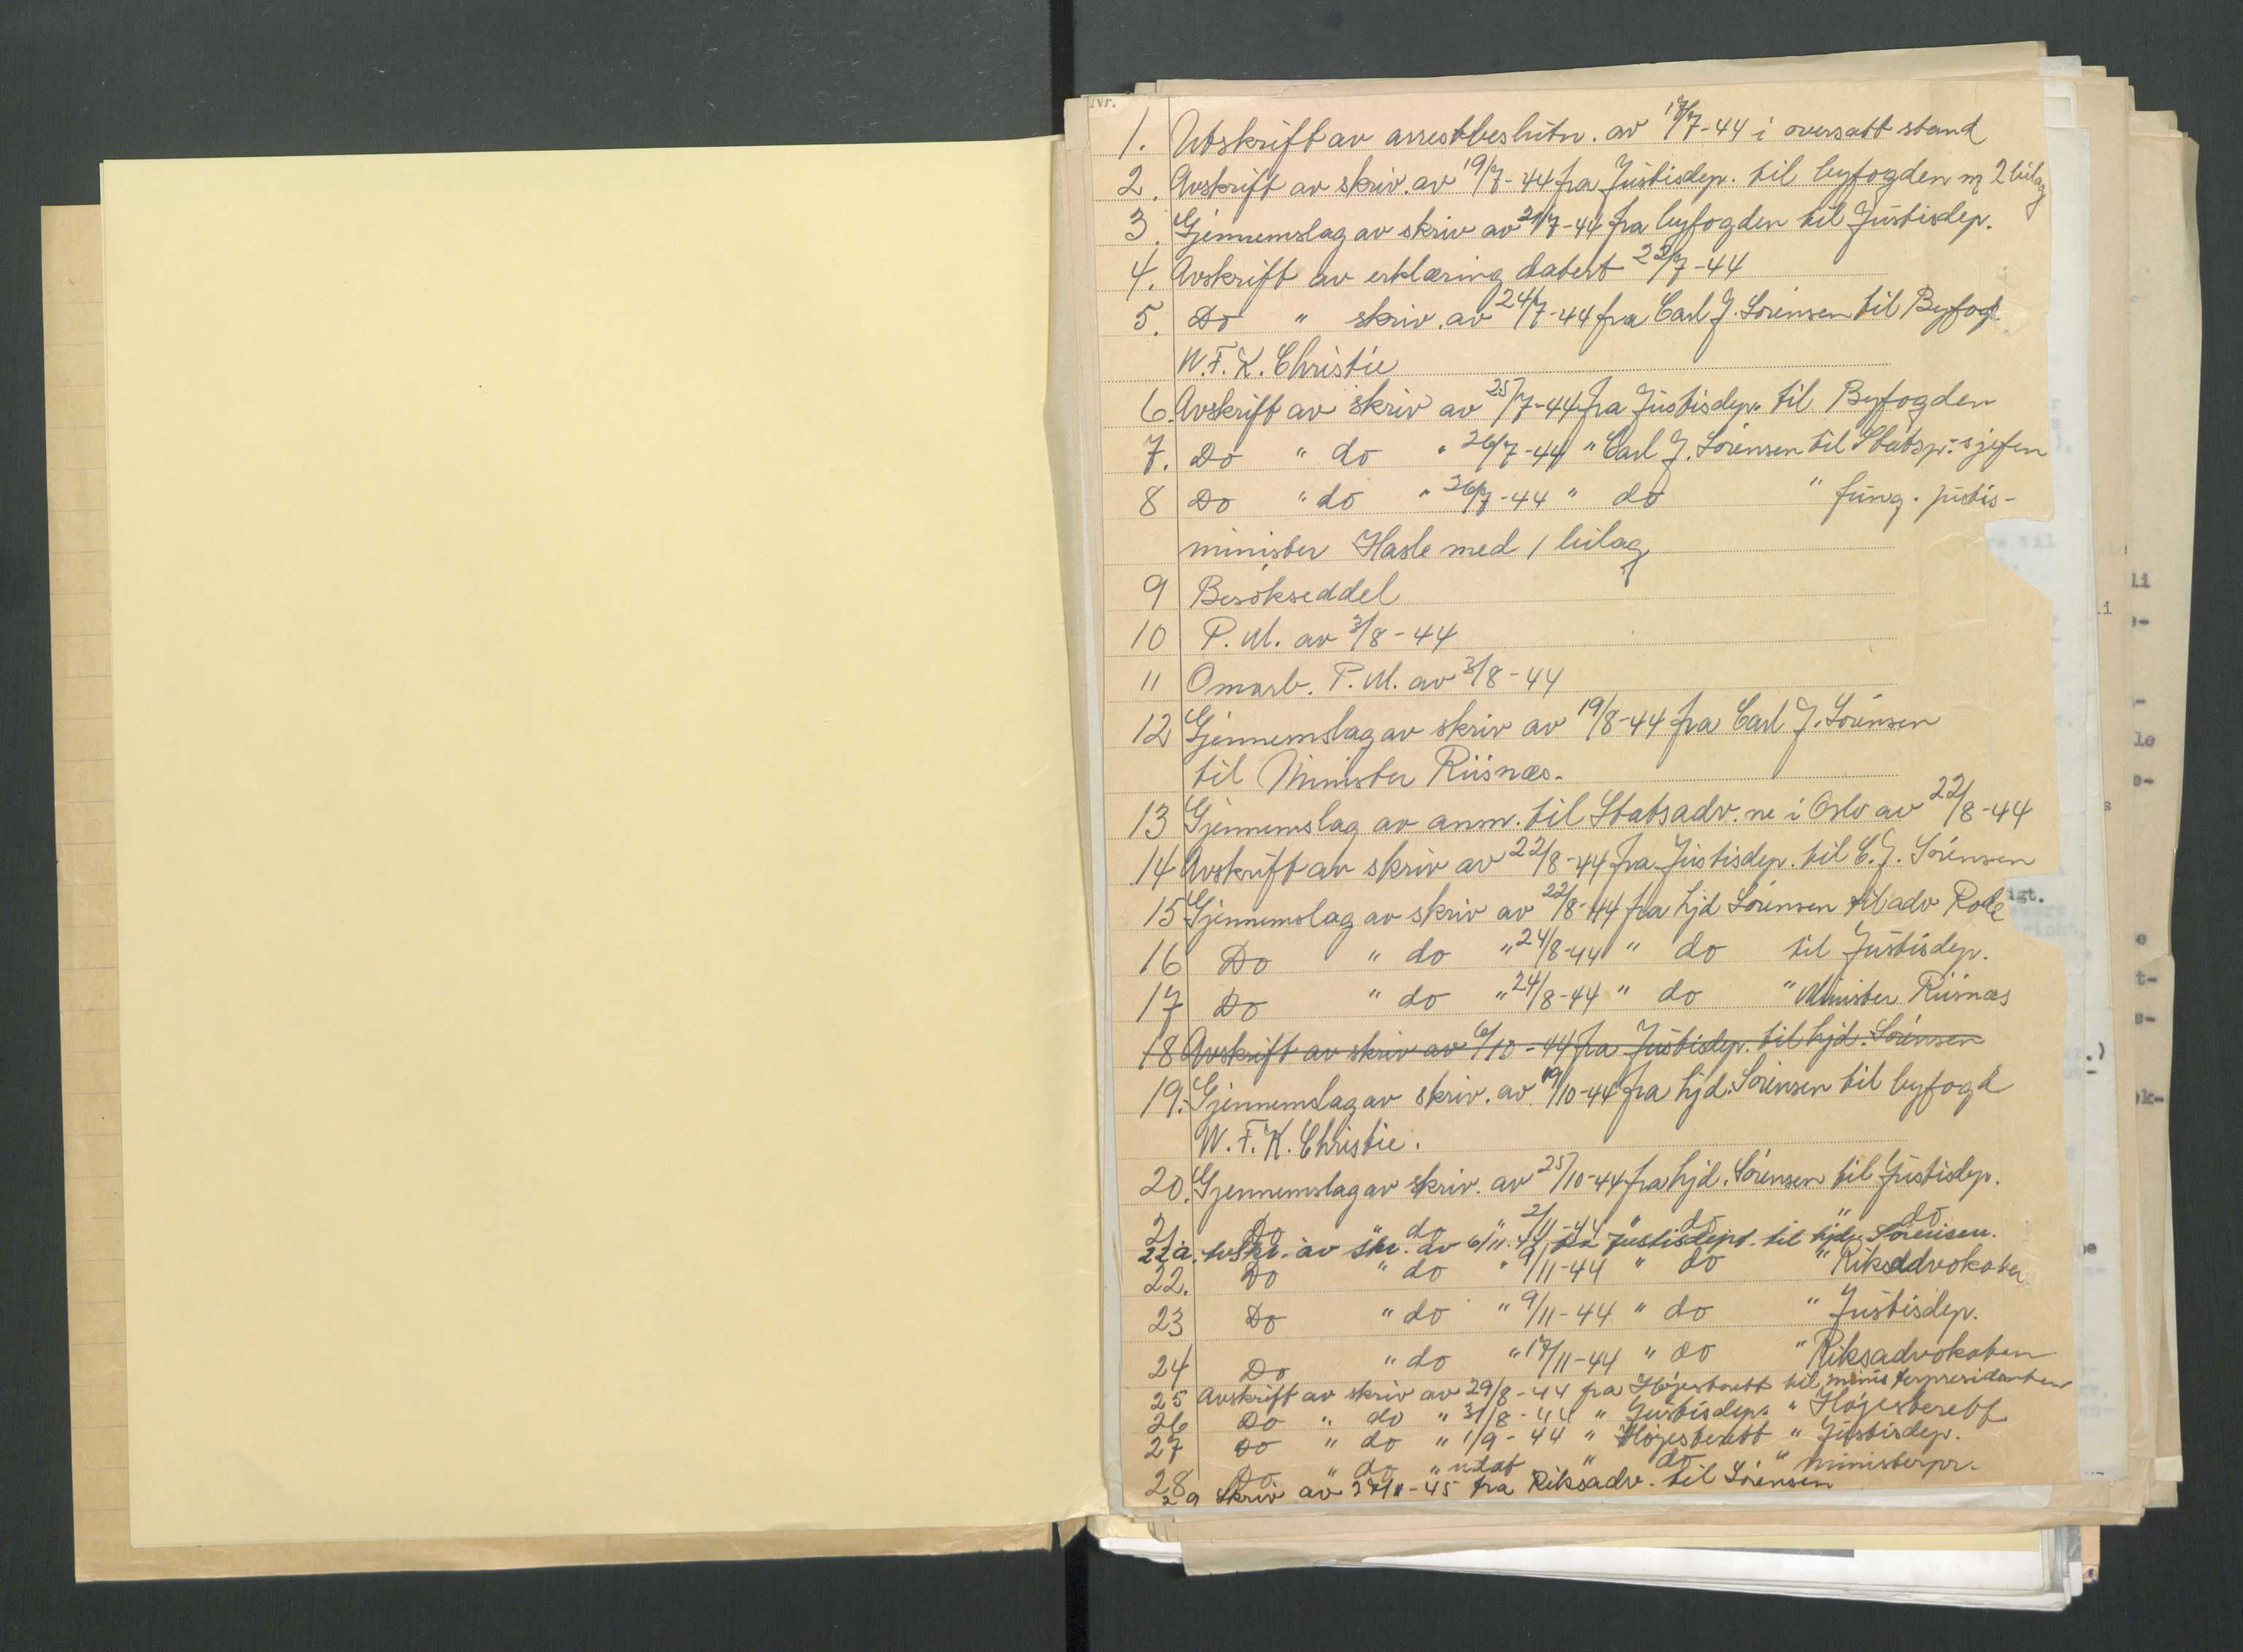 Nr.
1. Utskrift av arrestbeslutn. av 17/7-44 i oversatt stand
2. Avskrift av skriv. av 19/7-44 fra Justisdep. til byfogden m 2 bilag
3. Gjennemslag av skriv av 21/7-44 fra byfogden til Justisdep.
4. Avskrift av erklæring datert 22/7-44
5. Do " skriv. av 24/7-44 fra Carl J. Sörensen til Byfogd
W.F.K. Christie
6. Avskrift av skriv av 25/7-44 fra Justisdep. til Byfogden
7. Do " do " 26/7-44 " Carl J. Sörensen til Statsp. sjefen
8 Do " do " 26/7-44 " do " fung. justis-
minister Hasle med 1 bilag
9 Besökseddel
10 P.M. av 3/8-44
11 Omarb. P.M. av 3/8-44
12 Gjennemslag av skriv av 19/8-44 fra Carl J. Sörensen
til Minister Riisnæs.
13 Gjennemslag av anm. til Statsadv. ne i Oslo av 22/8-44
14 Avskrift av skriv av 22/8-44 fra Justisdep. til C.J. Sörensen
15 Gjennemslag av skriv av 22/8-44 fra hjd Sörensen til adv Rode
16 Do " do " 24/8-44 " do til Justisdep.
17 Do " do " 24/8-44 " do " Minister Riisnæs
18 Avskrift av skriv av 6/10-44 fra Justisdep. til hjd. Sörensen
19. Gjennemslag av skriv. av 19/10-44 fra hjd. Sörensen til byfogd
W.F.K. Christie.
20. Gjennemslag av skriv. av 25/10-44 fra hjd. Sörensen til Justisdep.
21 Do " do " 2/11-44 " do " do
22a. Avskr. av skr. av 6/11-44 fra Justisdept. til hjd. Sörensen.
22. Do " do " 9/11-44 " do " Riksadvokaten
23 Do " do " 9/11-44 " do " Justisdep.
24 Do " do " 17/11-44 " do " Riksadvokaten
25 Avskrift av skriv av 29/8-44 fra Höjesterett til ministerpresidenten
26 Do " do " 31/8-44 " Justisdep. " Höjesterett
27 Do " do " 1/9-44 " Höjesterett " Justisdep.
28 Do " do " udat " do " ministerpr.
29 Skriv av -45 fra Riksadv. til Sörensen